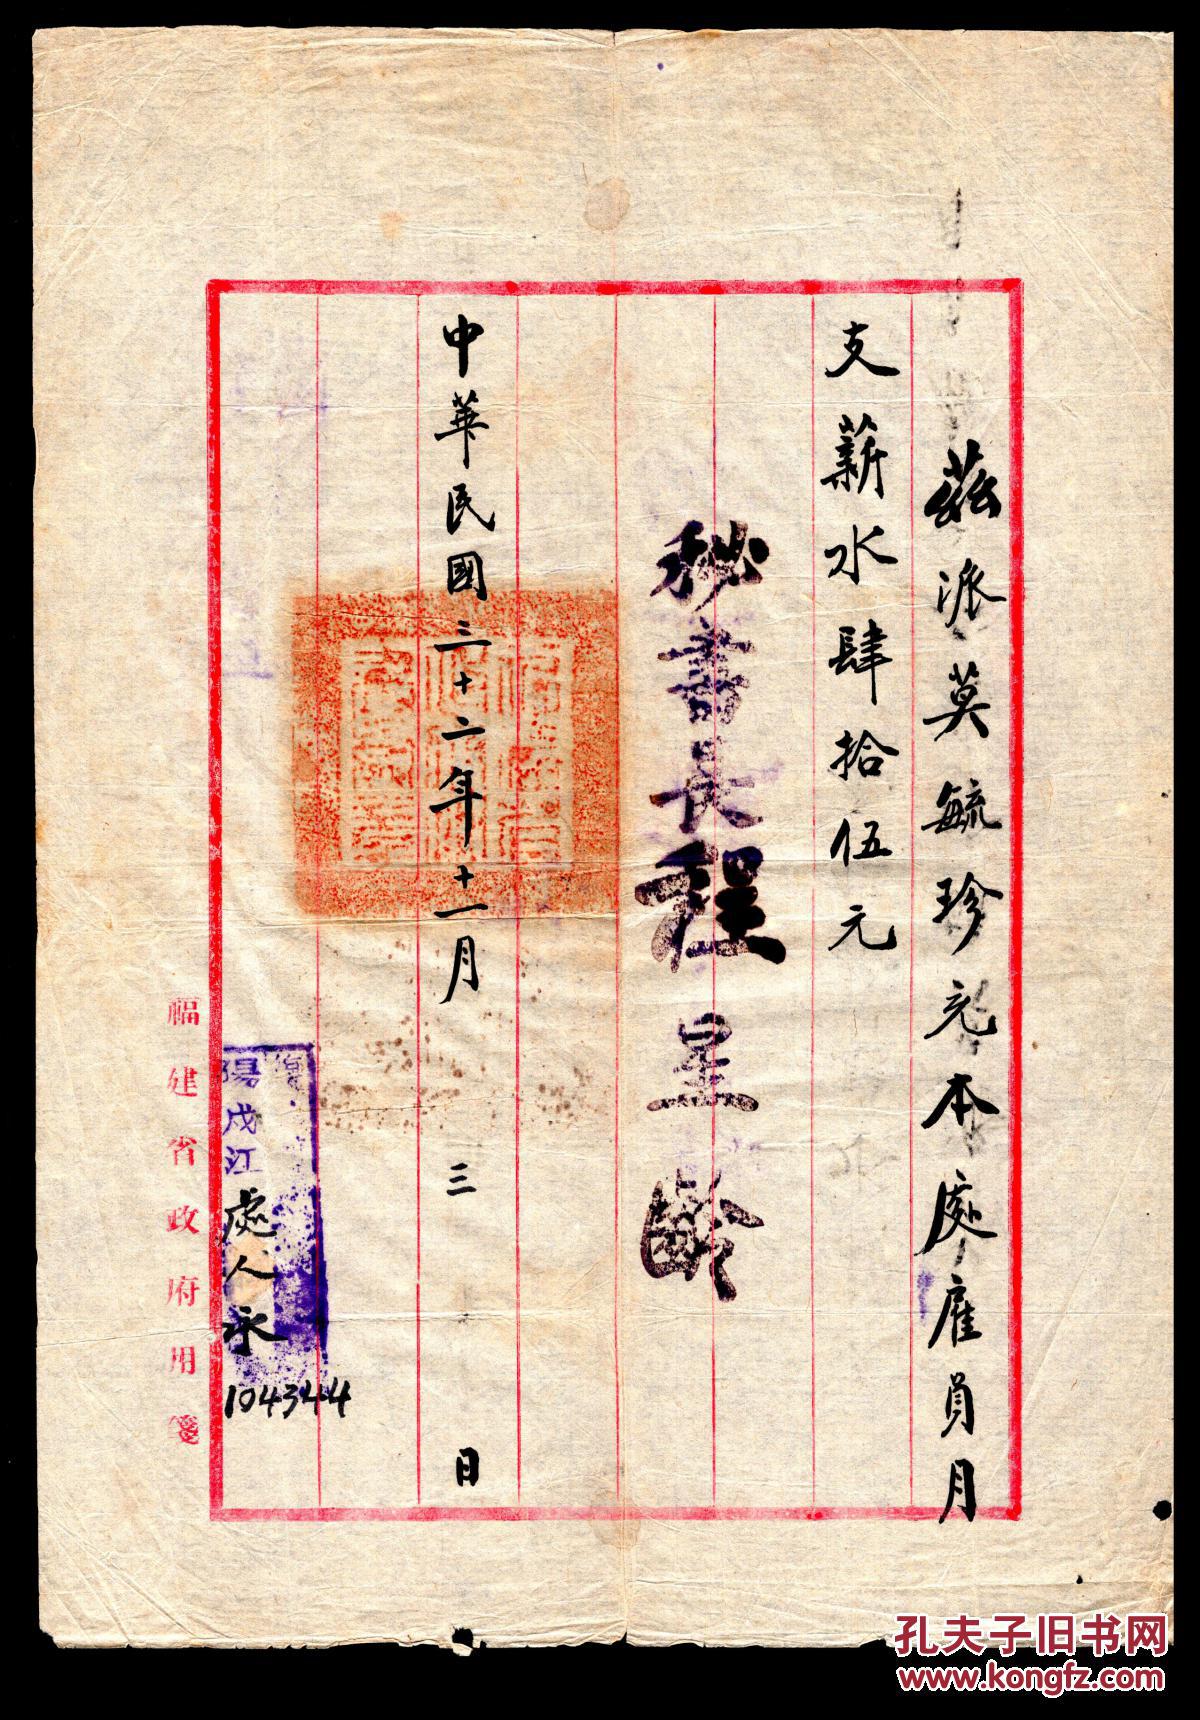 茲派莫毓珍充本處雇員月
支薪水肆拾伍元
秘書長程星齡
中華民國三十二年十一月三日
處人永
104344
福建省政府用箋
孔夫子旧书网
www.kongfz.com